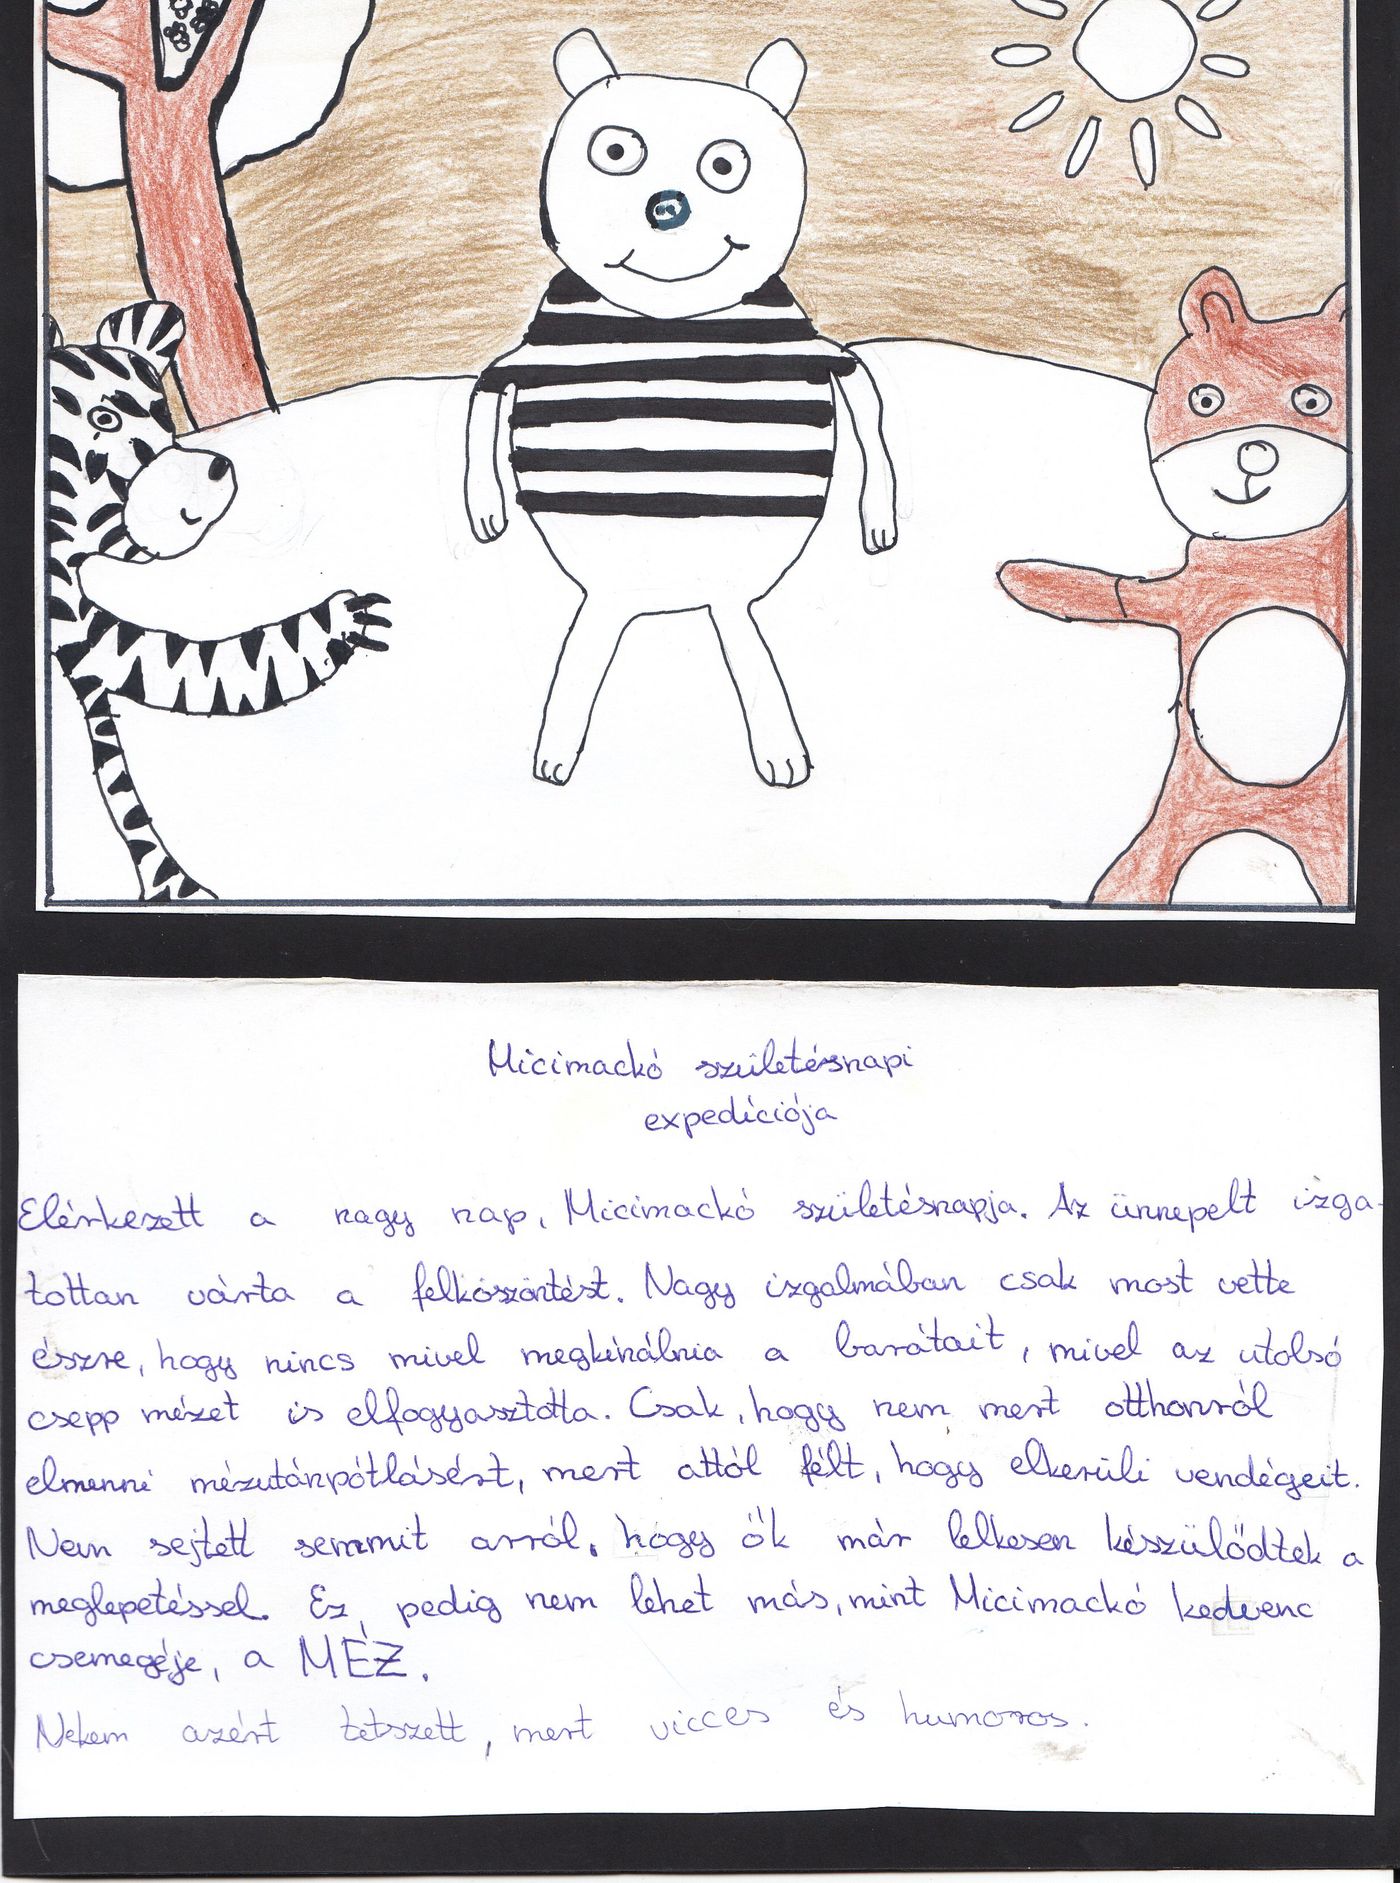 Micimackó születésnapi
expedíciója
Elérkezett a nagy nap, Micimackó születésnapja. Az ünnepelt izga-
tottan várta a felköszöntést. Nagy izgalmában csak most vette
észre, hogy nincs mivel megkínálnia a barátait, mivel az utolsó
csepp mézet is elfogyasztotta. Csak, hogy nem mert otthonról
elmenni mézutánpótlásért, mert attól félt, hogy elkerüli vendégeit.
Nem sejtett semmit arról, hogy ők már lelkesen készülődtek a
meglepetéssel. Ez pedig nem lehet más, mint Micimackó kedvenc
csemegéje, a MÉZ.
Nekem azért tetszett, mert vicces és humoros.